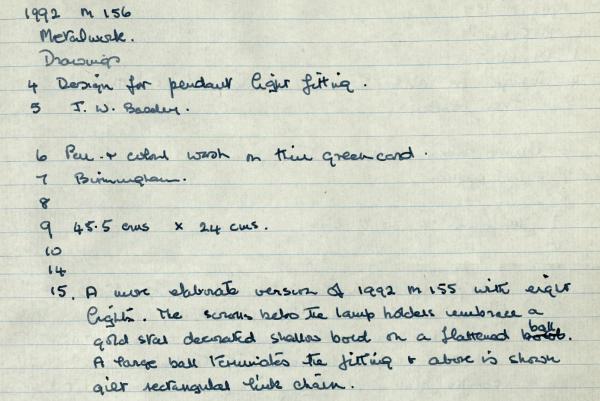 1992 M 156
Metalwork.
Drawings
4 Design for pendant light fitting.
5 J. W.
6 Pen & colour wash on thin green card.
7 Birmingham.
8
9 45.5 cms x 24 cms.
10
14
15. A more elaborate version of 1992 M 155 with eight
lights. The scrolls below the lamp holders embrace a
gold star decorated shallow bowl on a flattened ball.
A large ball terminates the fitting & above is shown
gilt rectangular link chain.